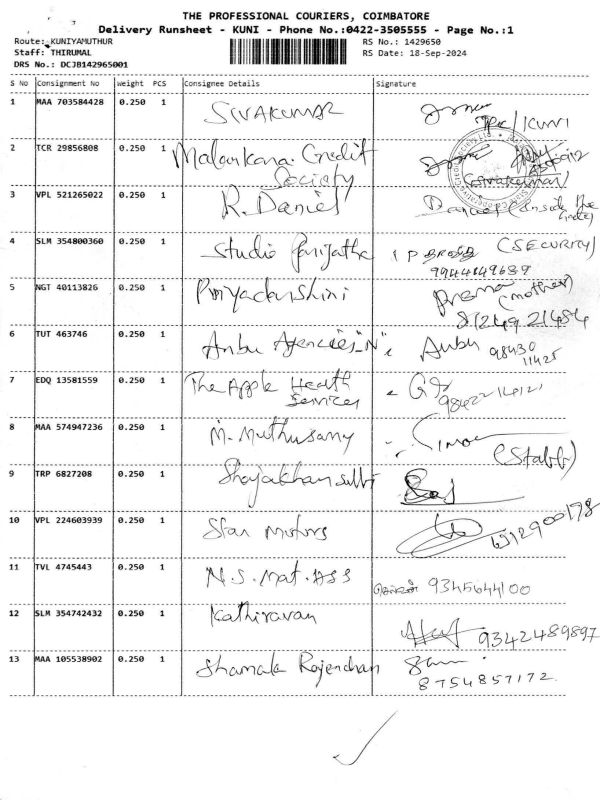 THE PROFESSIONAL COURIERS, COIMBATORE
Delivery Runsheet - KUNI - Phone No.:0422-3505555 - Page No.:1
Route: KUNIYAMUTHUR RS No.: 1429650
Staff: THIRUMAL RS Date: 18-Sep-2024
DRS No.: DCJB142965001
S No Consignment No Weight PCS Consignee Details Signature
1 MAA 703584428 0.250 1 SIVAKUMAR
2 TCR 29856808 0.250 1 Malankara Credit
Society (Sivakumar)
3 VPL 521265022 0.250 1 R. Daniel
4 SLM 354800360 0.250 1 Studio Parijatha (SECURITY)
9944149689
5 NGT 40113826 0.250 1 Priyadarshini Prema (mother)
8124921484
6 TUT 463746 0.250 1 Anbu Agencies "N" Anbu 98430
11425
7 EDQ 13581559 0.250 1 The Apple Health
Services
8 MAA 574947236 0.250 1 M. Muthusamy
(Staff)
9 TRP 6827208 0.250 1
10 VPL 224603939 0.250 1 Star Motors
11 TVL 4745443 0.250 1 N.S. Mat. Ass 9345644100
12 SLM 354742432 0.250 1 Kathiravan
9342489897
13 MAA 105538902 0.250 1 Shamala Rajendran
8754857172